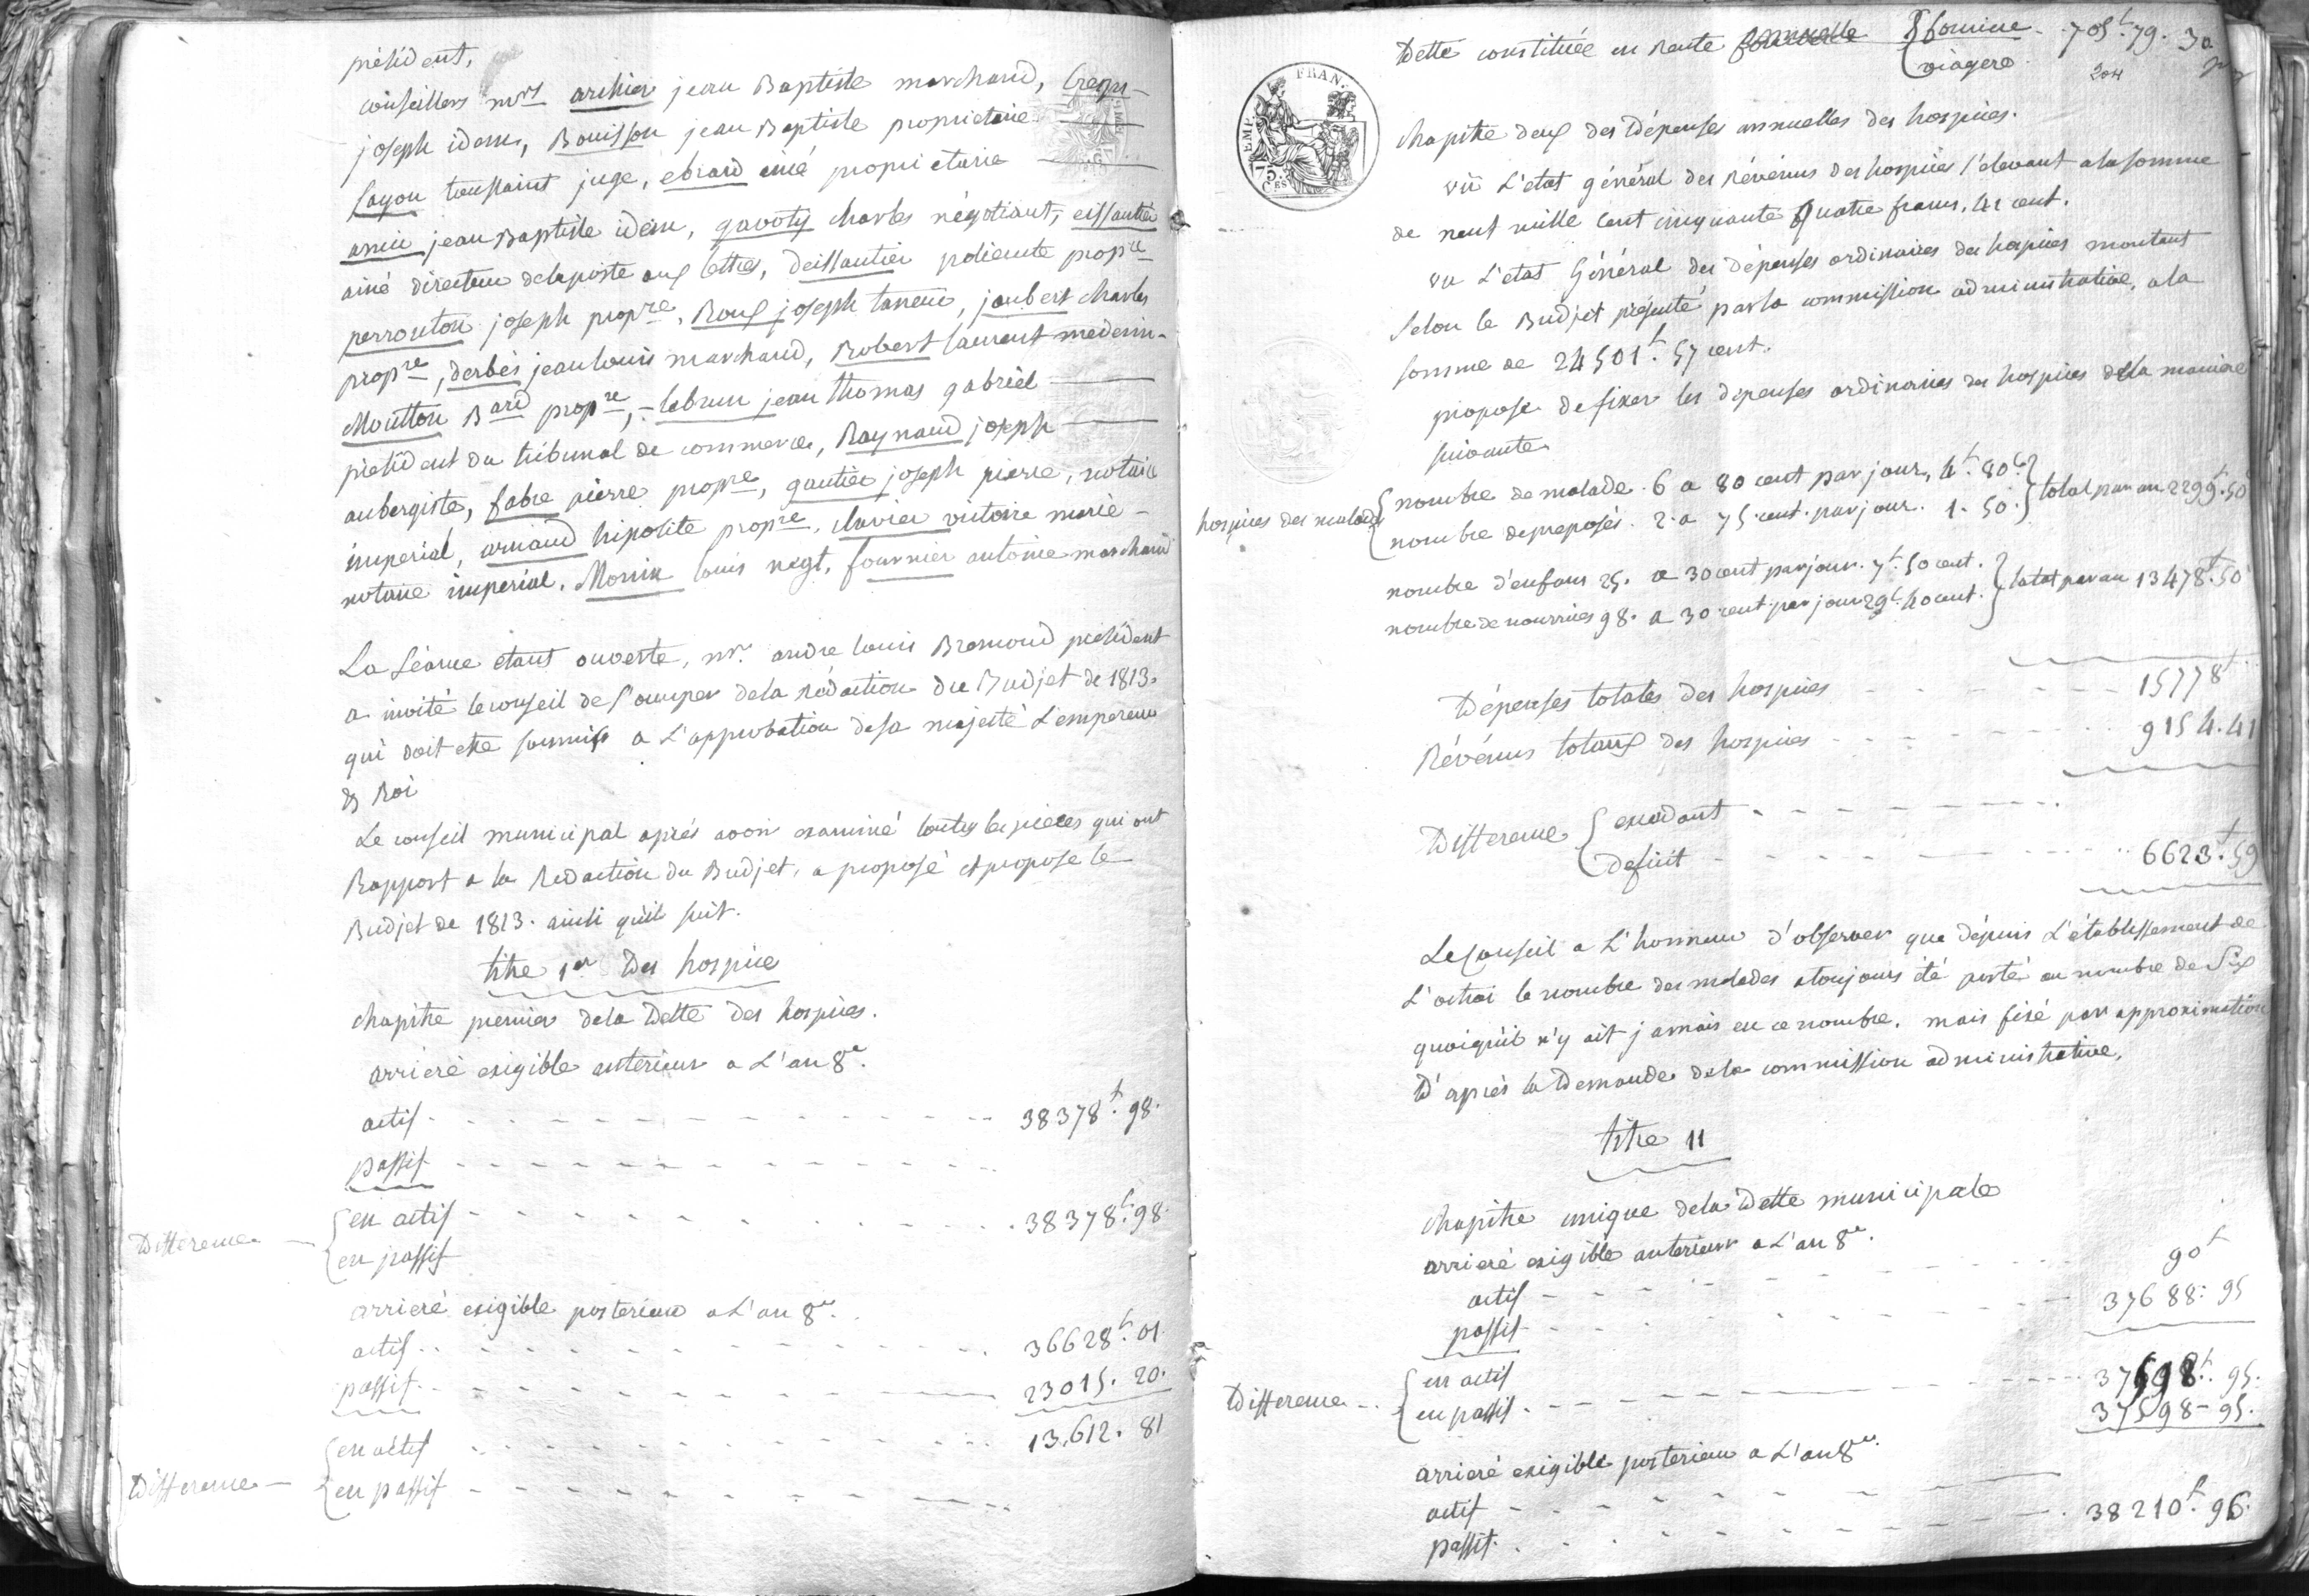 président,
conseillers mrs arthier jean Baptiste marchand, Crespi-
joseph idem, Bouisson jean Baptiste proprietaire
fayon toussaint juge, ebrard ainé proprietaire
amic jean Baptiste idem, gavoty charles négotiant, eissautier
ainé directeur dela poste aux lettres, deissautier policarte propre
perroulou joseph propre, Roux joseph taneur, joubert charles
propre, derbès jean louis marchand, Robert laurent medecin-
Moutton Bard propre, - lebrun jean thomas gabriel
président du tribunal de commerce, Raynaud joseph
aubergiste, fabre pierre propre, gautier joseph pierre, notaire
imperial, arnaud hipolite propre, clavier victoire marie-
notaire imperial, Monin louis negt, fournier antoine marchand
La séance étant ouverte, mr. andre louis Bremond président
a invité le conseil de s'occuper dela rédaction du Budjet de 1813.
qui doit etre soumis a L'approbation desa majesté L'empereur
& Roi
Le conseil municipal après avoir examiné toutes les pieces qui ont
Rapport a la Redaction du Budjet, a proposé et propose le
Budjet de 1813. ainsi qu'il suit.
titre 1er Des hospice
chapitre premier dela Dette Des hospices.
arrieré exigible anterieur a L'an 8e.
actif 38378f.98.
passif
Difference
en actif 38378f.98.
en passif
arrieré exigible posterieur a L'an 8e.
actif 36628f.01.
passif 23015.20.
Difference
en actif 13,612.81
en passif
FRAN.
EMP.
75.
CES
Dette constituée en Rente fonciere 705f.79. 30
viagere 204
chapitre deux des Dépenses annuelles des hospices.
vû L'etat général des Révénus des hospices s'élevant ala somme
de neuf mille cent cinquante quatre francs, 41 cent.
vu L'etat Général des dépenses ordinaires des hospices montant
selon le Budjet présenté par la commission administrative, ala
somme de 24501f.57 cent.
propose de fixer les dépenses ordinaires des hospices dela maniere
suivante
hospices des malades
nombre de malade. 6 a 80 cent par jour, 4f.80c
nombre de preposés. 2. a 75. cent. par jour. 1.50. total par an 2299f.50
nombre d'enfans 25. a 30 cent par jour. 7f.50 cent.
nombre de nourrices 98. a 30 cent par jour 29f.40 cent. total par an 13478f.50
Dépenses totales des hospices 15778f
Révénus totaux des hospices 9154.41
Difference
excedant
deficit 6623f.59
Le Conseil a L'honneur d'observer que dépuis L'établissement de
L'octroi le nombre des malades a toujours été porté au nombre de Six
quoiqu'il n'y ait jamais eu ce nombre. mais fixé par approximation
D'après la Demande dela commission administrative.
titre 11
chapitre unique dela Dette municipale
arrieré exigible anterieur a L'an 8e.
actif 90f
passif 37688.95
Difference
en actif 37598f.95.
en passif 37598-95.
arrieré exigible posterieur a L'an 8e
actif
passif 38210f.96.